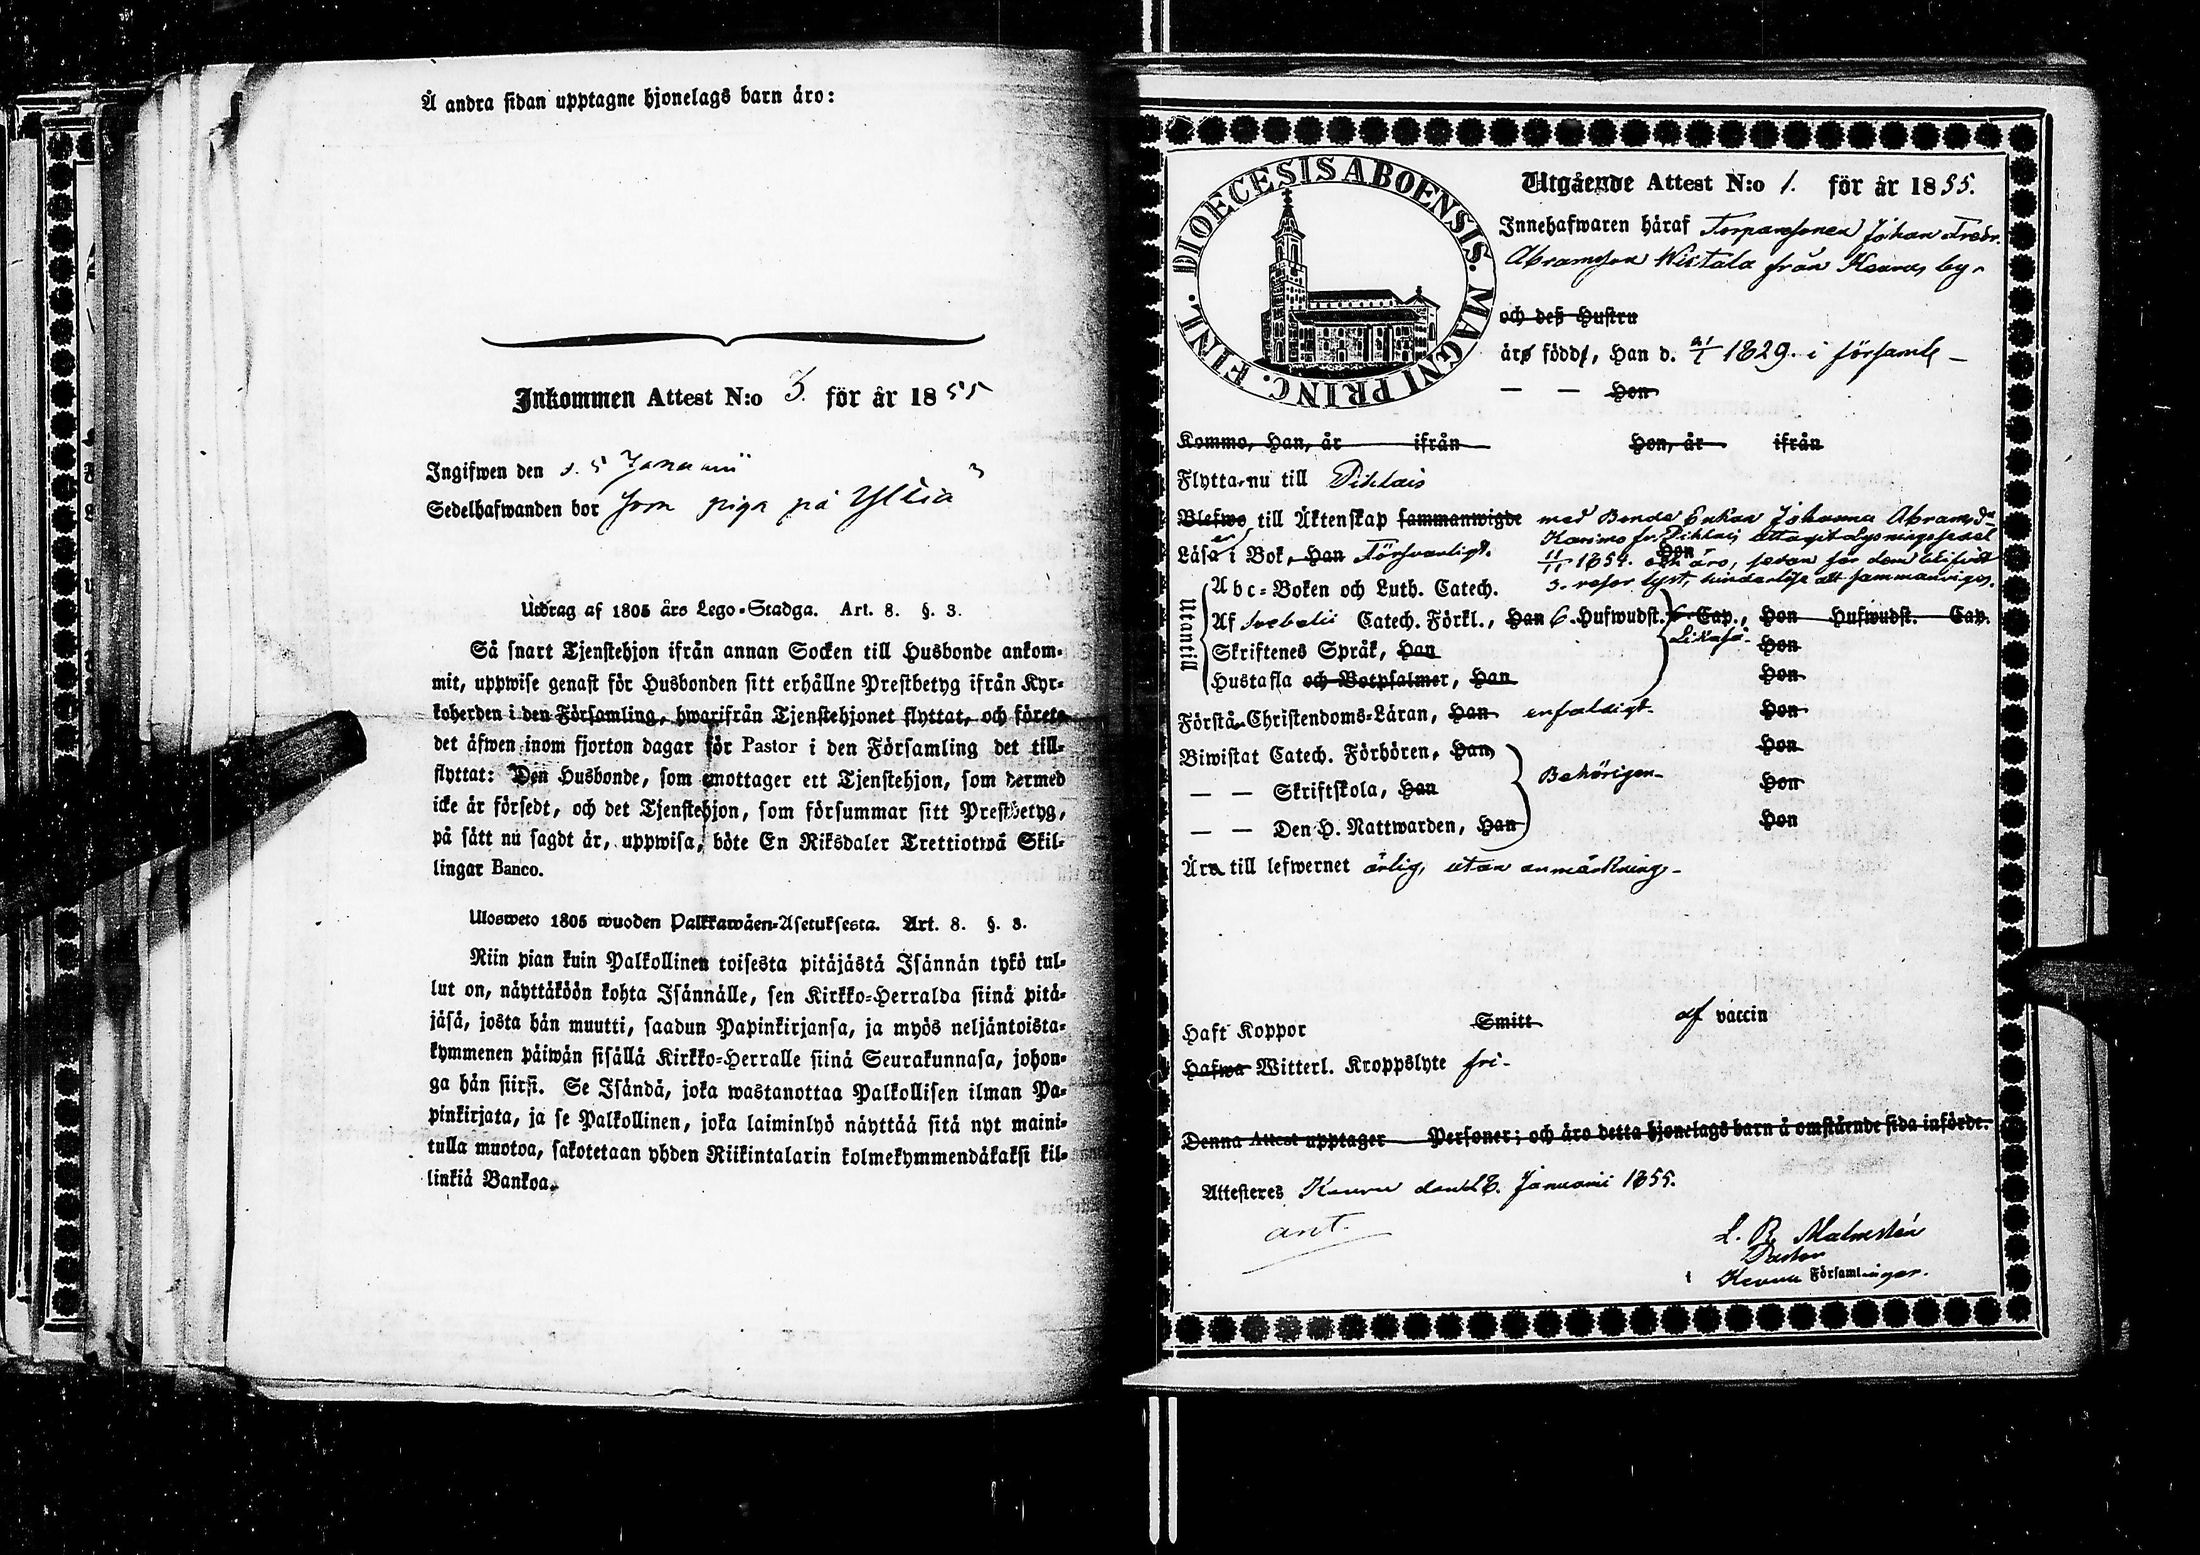 Å andra sidan upptagne hjonelags barn äro:
Inkommen Attest N:o 3. för år 1855
Ingifwen den d. 5 Januarii
Sedelhafwanden bor som piga på
Utdrag af 1805 års Lego-Stadga. Art. 8. §. 3.
Så snart Tjenstehjon ifrån annan Socken till Husbonde ankom-
mit, uppwise genast för Husbonden sitt erhållne Prestbetyg ifrån Kyr-
koherden i den Församling, hwarifrån Tjenstehjonet flyttat, och förete
det äfwen inom fjorton dagar för Pastor i den Församling det till-
flyttat: Den Husbonde, som emottager ett Tjenstehjon, som dermed
icke är försedt, och det Tjenstehjon, som försummar sitt Prestbetyg,
på sätt nu sagdt är, uppwisa, böte En Riksdaler Trettiotwå Skil-
lingar Banco.
Ulosweto 1805 wuoden Palkkawäen-Asetuksesta. Art. 8. §. 3.
Niin pian kuin Palkollinen toisesta pitäjästä Isännän tykö tul-
lut on, näyttäköön kohta Isännälle, sen Kirkko-Herralda siinä pitä-
jäsä, josta hän muutti, saadun Papinkirjansa, ja myös neljäntoista-
kymmenen päiwän sisällä Kirkko-Herralle siinä Seurakunnasa, johon-
ga hän siirsi. Se Isändä, joka wastanottaa Palkollisen ilman Pa-
pinkirjata, ja se Palkollinen, joka laiminlyö näyttää sitä nyt maini-
tulla muotoa, sakotetaan yhden Riikintalarin kolmekymmendäkaksi kil-
linkiä Bankoa.
DIOECESIS ABOENSIS. MAGNI PRINC. FINL.
Utgående Attest N:o 1. för år 1855.
Innehafwaren häraf Torparesonen Johan Fredr.
Abramsson från by.
och deß Hustru
äro född, Han d. 1829. i församl.
— — Hon
Kommo, Han, år ifrån Hon, år ifrån
Flytta nu till Pihlais
Blefwo till Äktenskap sammanwigde med Bonde Enkan Johanna Abramsd.
fr. Pihlais
Läsa i Bok, Han Försvarligt.
11/11 1854. och äro, sedan för dem blifvit
3. resor lyst, hinderlöse att sammanvigas.
Utantill
Abc-Boken och Luth. Catech.
Af Svebelii Catech. Förkl., Han 6 Hufwudst. 6 Cap., Hon Hufwudst. Cap.
Likaså.
Skriftenes Språk, Han Hon
Hustafla och Botpsalmer, Han Hon
Förstå Christendoms-Läran, Han enfaldigt. Hon
Biwistat Catech. Förhören, Han Hon
— — Skriftskola, Han Behörigen Hon
— — Den H. Nattwarden, Han Hon
Ära till lefwernet ärlig, utan anmärkning.
Haft Koppor Smitt af vaccin
Hafwa Witterl. Kroppslyte fri.
Denna Attest upptager Personer; och äro detta hjonelags barn å omstående sida införde.
Attesteres den 8. Januarii 1855.
ant.
L. R. Malmstén
Pastor
i Församlingar.